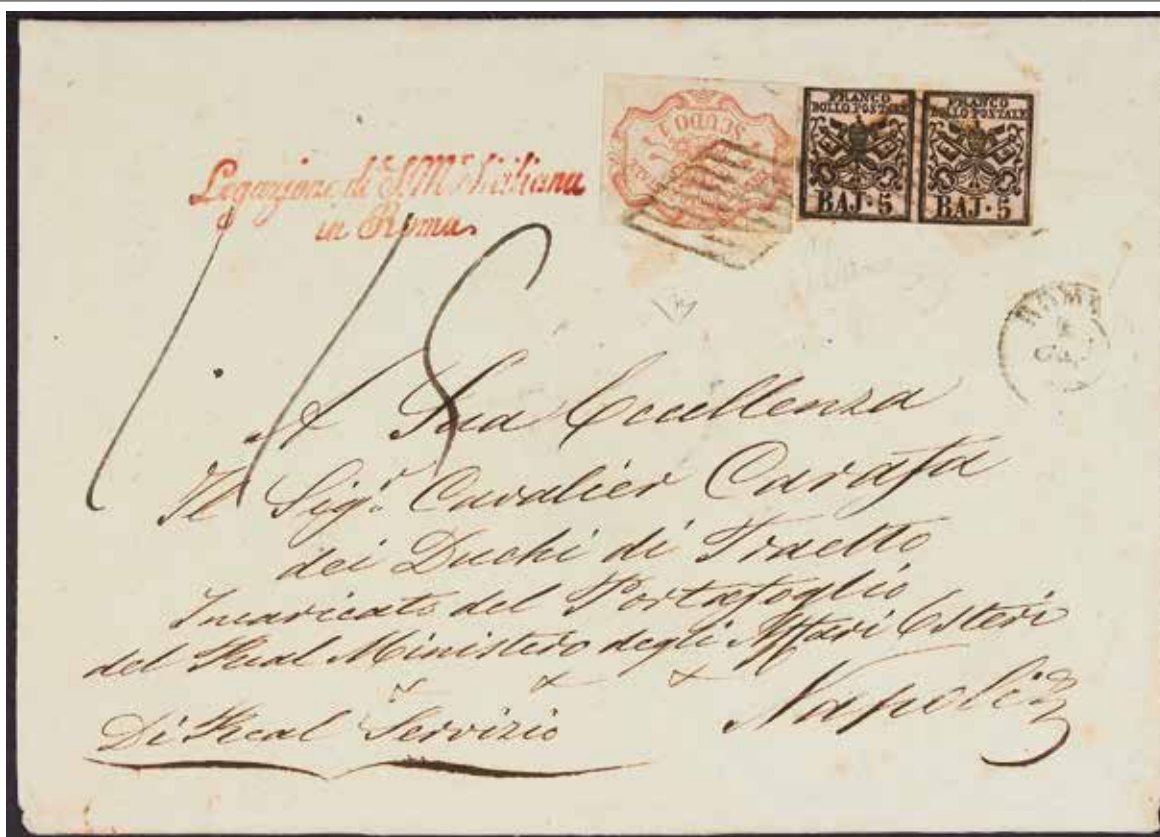 Legazione di S. M. Siciliana
in Roma.
SCUDO 1
FRANCO
BOLLO POSTALE
BAJ·5
FRANCO
BOLLO POSTALE
BAJ·5
ROMA
A Sua Eccellenza
Il Sig.r Cavalier Carafa
dei Duchi di Traetto
Incaricato del Portafoglio
del Real Ministero degli Affari Esteri
Napoli
Di Real Servizio